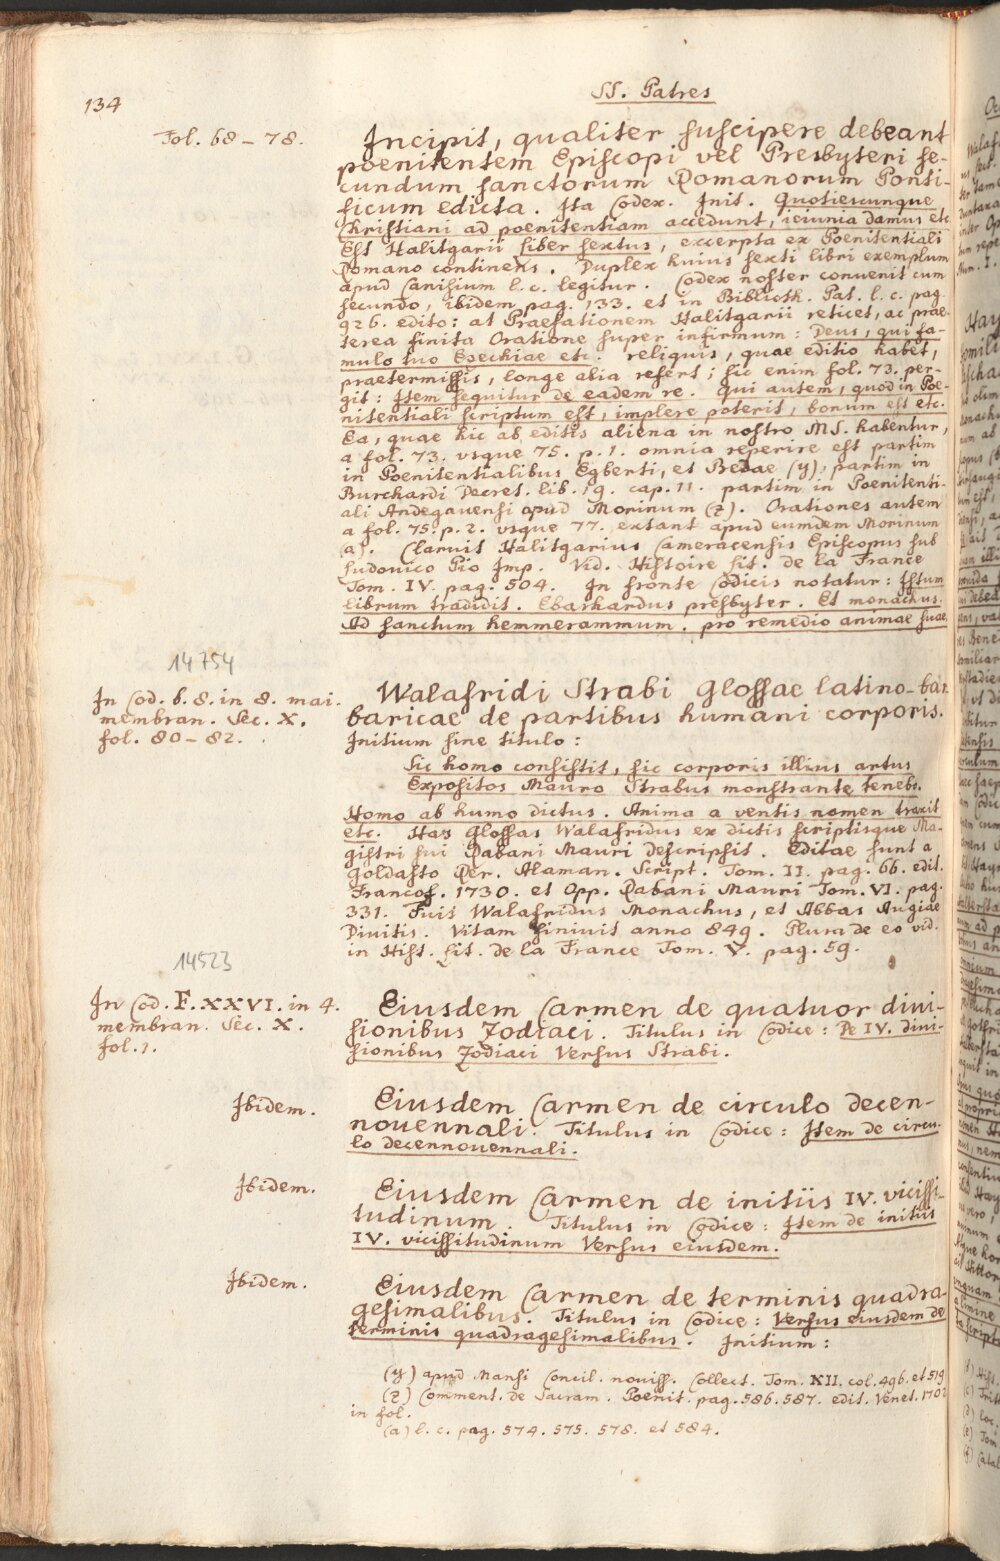 134
SS. Patres
Fol. 68 – 78.
Incipit, qualiter suscipere debeant
poenitentem Episcopi vel Presbyteri se-
cundum sanctorum Romanorum Ponti-
ficum edicta. Ita Codex. Init. Quotiescunque
Christiani ad poenitentiam accedunt, ieiunia damus etc.
Est Halitgarii Liber sextus, excerpta ex Poenitentiali
Romano continens. Duplex huius sexti libri exemplum
apud Canisium l. c. legitur. Codex noster convenit cum
secundo, ibidem pag. 133. et in Biblioth. Pat. l. c. pag.
926. edito: at Praefationem Halitgarii reticet, ac prae-
terea finita Oratione super infirmum: Deus, qui fa-
mulo tuo Ezechiae etc. reliquis, quae editio habet,
praetermissis, longe alia refert; sic enim fol. 73. per-
git: Item sequitur de eadem re. Qui autem, quod in Poe-
nitentiali scriptum est, implere poterit, bonum est etc.
Ea, quae hic ab editis aliena in nostro MS. habentur,
a fol. 73. vsque 75. p. 1. omnia reperire est partim
in Poenitentialibus Egberti, et Bedae (y), partim in
Burchardi Decret. lib. 19. cap. 11. partim in Poenitenti-
ali Andegavensi apud Morinum (z). Orationes autem
a fol. 75. p. 2. vsque 77. extant apud eumdem Morinum
(a). Claruit Halitgarius Cameracensis Episcopus sub
Ludovico Pio Imp. Vid. Histoire lit. de la France
Tom. IV. pag. 504. In fronte Codicis notatur: Istum
librum tradidit. Ebarhardus presbyter. Et monachus.
Ad sanctum hemmerammum. pro remedio animae suae.
14754
In Cod. b. 8. in 8. mai.
membran. Sec. X.
fol. 80 – 82.
Walafridi Strabi Glossae latino-bar-
baricae de partibus humani corporis.
Initium sine titulo:
Sic homo consistit, sic corporis illius artus
Expositos Mauro Strabus monstrante tenebo.
Homo ab humo dictus. Anima a ventis nomen traxit
etc. Has Glossas Walafridus ex dictis scriptisque Ma-
gistri sui Rabani Mauri descripsit. Editae sunt a
Goldasto Rer. Alaman. Script. Tom. II. pag. 66. edit.
Francof. 1730. et Opp. Rabani Mauri Tom. VI. pag.
331. Fuit Walafridus Monachus, et Abbas Augiae
Divitis. Vitam finivit anno 849. Plura de eo vid.
in Hist. Lit. de la France Tom. V. pag. 59.
14523
In Cod. F. XXVI. in 4.
membran. Sec. X.
fol. 1.
Eiusdem Carmen de quatuor divi-
sionibus Zodiaci. Titulus in Codice: De IV. divi-
sionibus Zodiaci Versus Strabi.
Ibidem.
Eiusdem Carmen de circulo decen-
novennali. Titulus in Codice: Item de circu-
lo decennovennali.
Ibidem.
Eiusdem Carmen de initiis IV. vicissi-
tudinum. Titulus in Codice: Item de initiis
IV. vicissitudinum Versus eiusdem.
Ibidem.
Eiusdem Carmen de terminis quadra-
gesimalibus. Titulus in Codice: Versus eiusdem de
terminis quadragesimalibus. Initium:
(y) apud Mansi Concil. noviss. Collect. Tom. XII. col. 496. et 519
(z) Comment. de Sacram. Poenit. pag. 586. 587. edit. Venet. 1702
in fol.
(a) l. c. pag. 574. 575. 578. et 584.